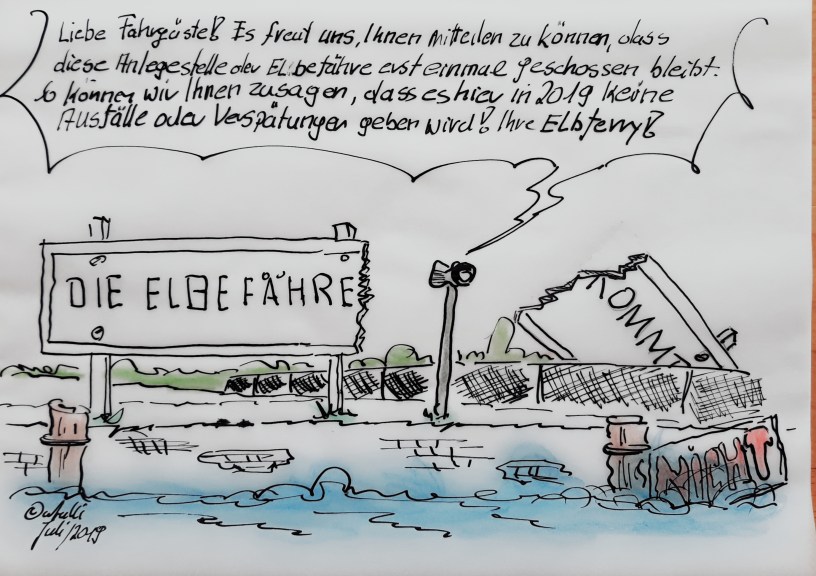 Liebe Fahrgäste! Es freut uns, Ihnen mitteilen zu können, dass
diese Anlegestelle der Elbefähre erst einmal geschossen bleibt.
So können wir Ihnen zusagen, dass es hier in 2019 keine
Ausfälle oder Verspätungen geben wird! Ihre Elbferry!
DIE ELBEFÄHRE
KOMMT
NICHT
Juli/2019